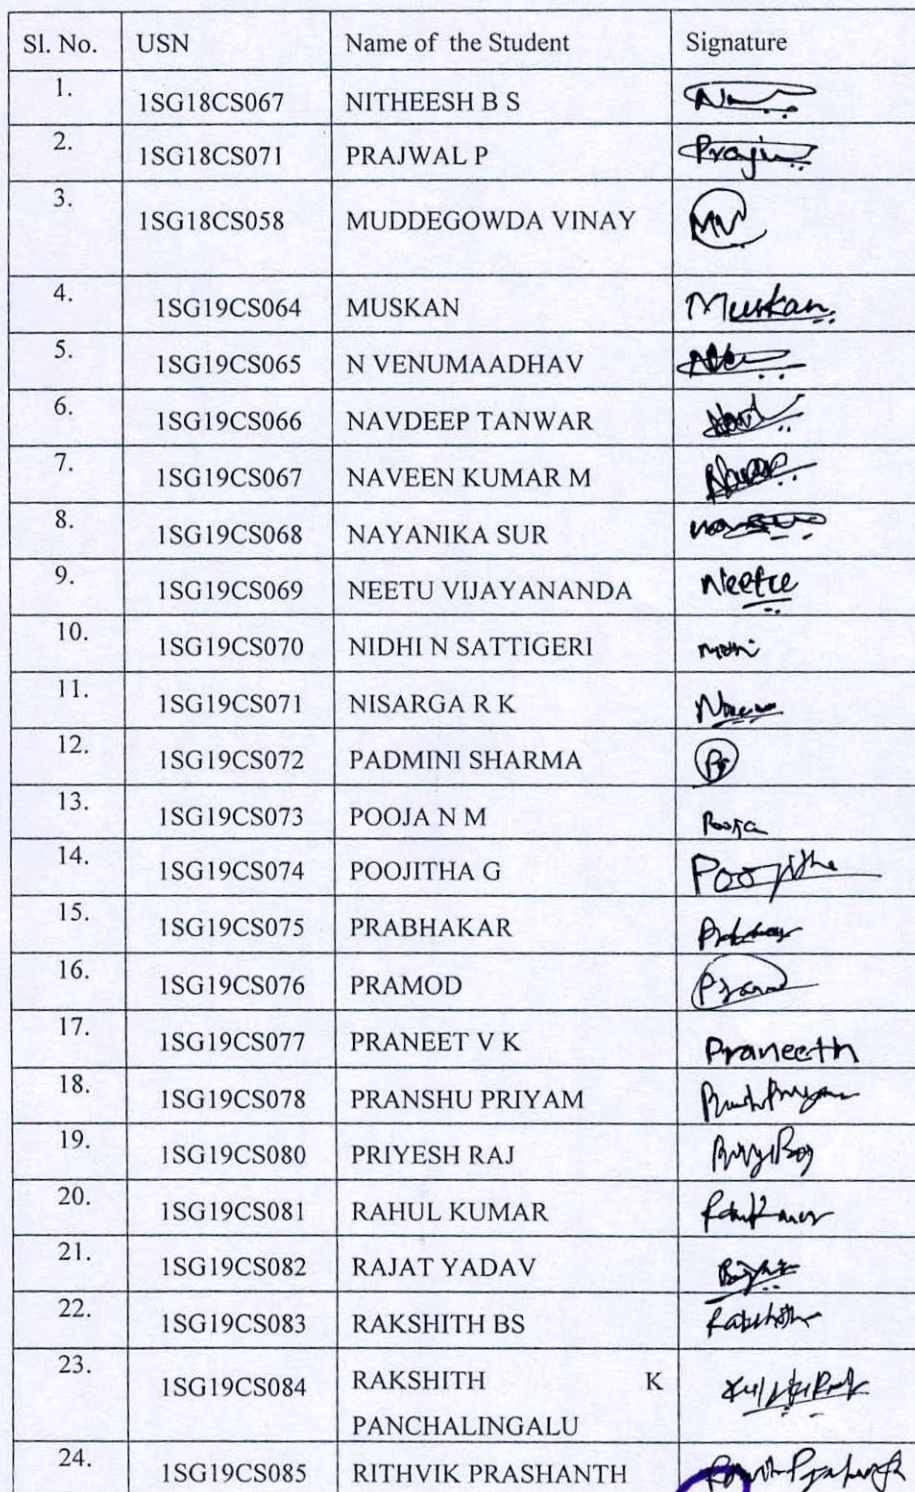 Sl. No. USN Name of the Student Signature
1. 1SG18CS067 NITHEESH B S
2. 1SG18CS071 PRAJWAL P
3. 1SG18CS058 MUDDEGOWDA VINAY MV
4. 1SG19CS064 MUSKAN Muskan
5. 1SG19CS065 N VENUMAADHAV
6. 1SG19CS066 NAVDEEP TANWAR
7. 1SG19CS067 NAVEEN KUMAR M
8. 1SG19CS068 NAYANIKA SUR
9. 1SG19CS069 NEETU VIJAYANANDA
10. 1SG19CS070 NIDHI N SATTIGERI
11. 1SG19CS071 NISARGA R K
12. 1SG19CS072 PADMINI SHARMA
13. 1SG19CS073 POOJA N M Pooja
14. 1SG19CS074 POOJITHA G Poojitha
15. 1SG19CS075 PRABHAKAR
16. 1SG19CS076 PRAMOD
17. 1SG19CS077 PRANEET V K Praneeth
18. 1SG19CS078 PRANSHU PRIYAM
19. 1SG19CS080 PRIYESH RAJ
20. 1SG19CS081 RAHUL KUMAR
21. 1SG19CS082 RAJAT YADAV
22. 1SG19CS083 RAKSHITH BS
23. 1SG19CS084 RAKSHITH K
PANCHALINGALU
24. 1SG19CS085 RITHVIK PRASHANTH